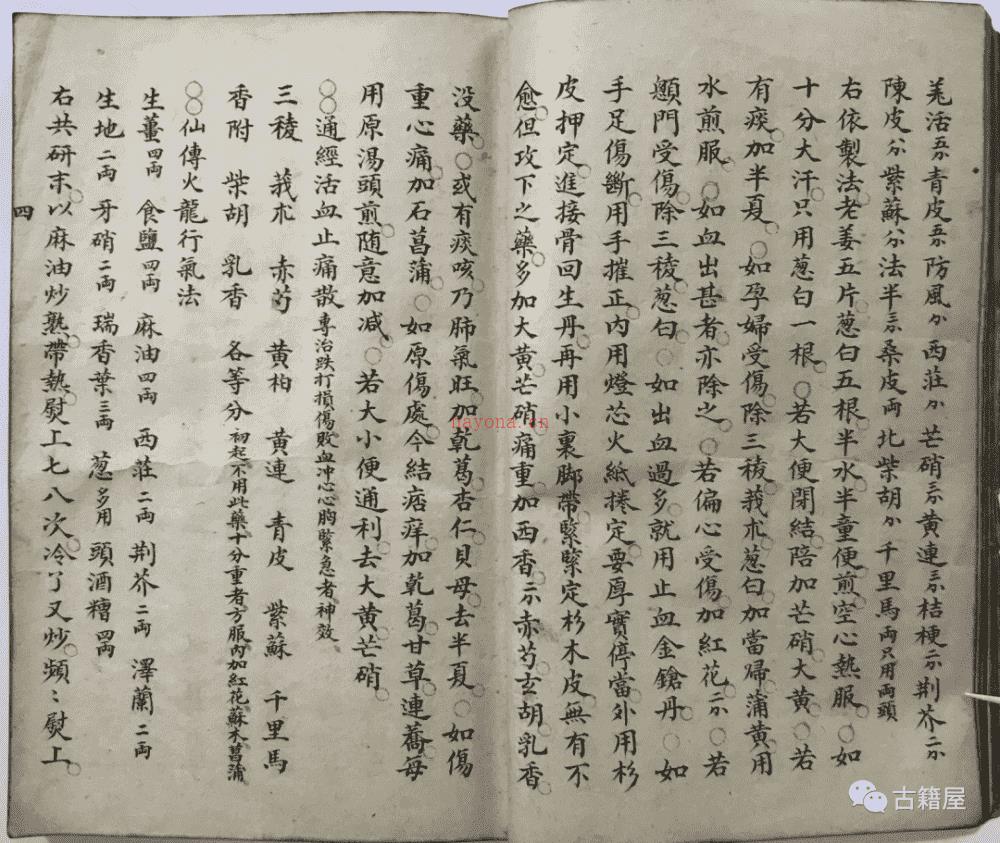 羌活五分青皮五分防風分西莊分芒硝三分黃連三分桔梗二分荆芥二分
陳皮八分紫蘇八分法半三分桑皮兩北柴胡分千里馬兩只用兩頭
右依製法老姜五片葱白五根半水半童便煎空心熱服○如
十分大汗只用葱白一根○若大便閉結陪加芒硝大黃○若
有痰加半夏○如孕婦受傷除三稜莪朮葱白加當歸蒲黃用
水煎服○如血出甚者亦除之○若偏心受傷加紅花二分○若
顖門受傷除三稜葱白○如出血過多就用止血金鎗丹○如
手足傷斷用手摧正內用燈芯火紙捲定要厚實停當外用杉
皮押定進接骨回生丹再用小裹脚帶緊緊定杉木皮無有不
愈但攻下之藥多加大黃芒硝痛重加西香二分赤芍玄胡乳香
没藥○或有痰咳乃肺氣旺加乾葛杏仁貝母去半夏○如傷
重心痛加石菖蒲○如原傷處今結痞痒加乾葛甘草連蕎每
用原湯頭煎随意加减○若大小便通利去大黃芒硝
○○通經活血止痛散專治跌打損傷敗血冲心心胸緊急者神效
三稜 莪朮 赤芍 黃柏 黃連 青皮 紫蘇 千里馬
香附 柴胡 乳香 各等分初起不用此藥十分重者方服內加紅花蘇木菖蒲
○○仙傳火龍行氣法
生薑四兩 食鹽四兩 麻油四兩 西莊二兩 荆芥二兩 澤蘭二兩
生地二兩 牙硝二兩 瑞香葉三兩 葱多用 頭酒糟四兩
右共研末以麻油炒熟帶熱熨上七八次冷了又炒頻〻熨上
四
nayona.cn
古籍屋